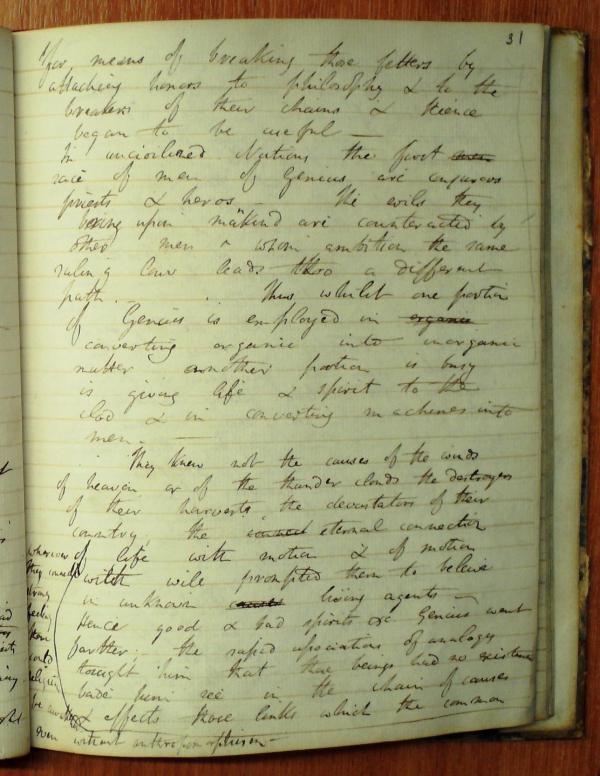 31
for means of breaking those fetters by
attaching honors to philosophy & to the
breakers of their chains & Science
began to be useful —
In uncivilized Nations the first
race of men of Genius are conquerors
priests & heros — The evils they
bring upon mankind are counteracted by
other men ^ whom ambition the same
ruling law leads thro a different
path. Thus whilst one portion
of Genius is employed in organic
converting organic into inorganic
matter another portion is busy
is giving life & spirit to the
clod & in converting machines into
men. —
They knew not the causes of the winds
of heaven or of the thunder clouds the destroyers
of their harvests, the devastators of their
country, the eternal connection
of life with motion & of motion
with will prompted them to beleive
in unknown causes living agents —
Hence good & bad spirits &c. Genius went
farther. — the rapid association of analogy
tought him that these beings had no existence
bade him see in the chain of causes
& effects those links which the common
wherever
they
strong
them
world
religion
be
even without anthropomorphism —